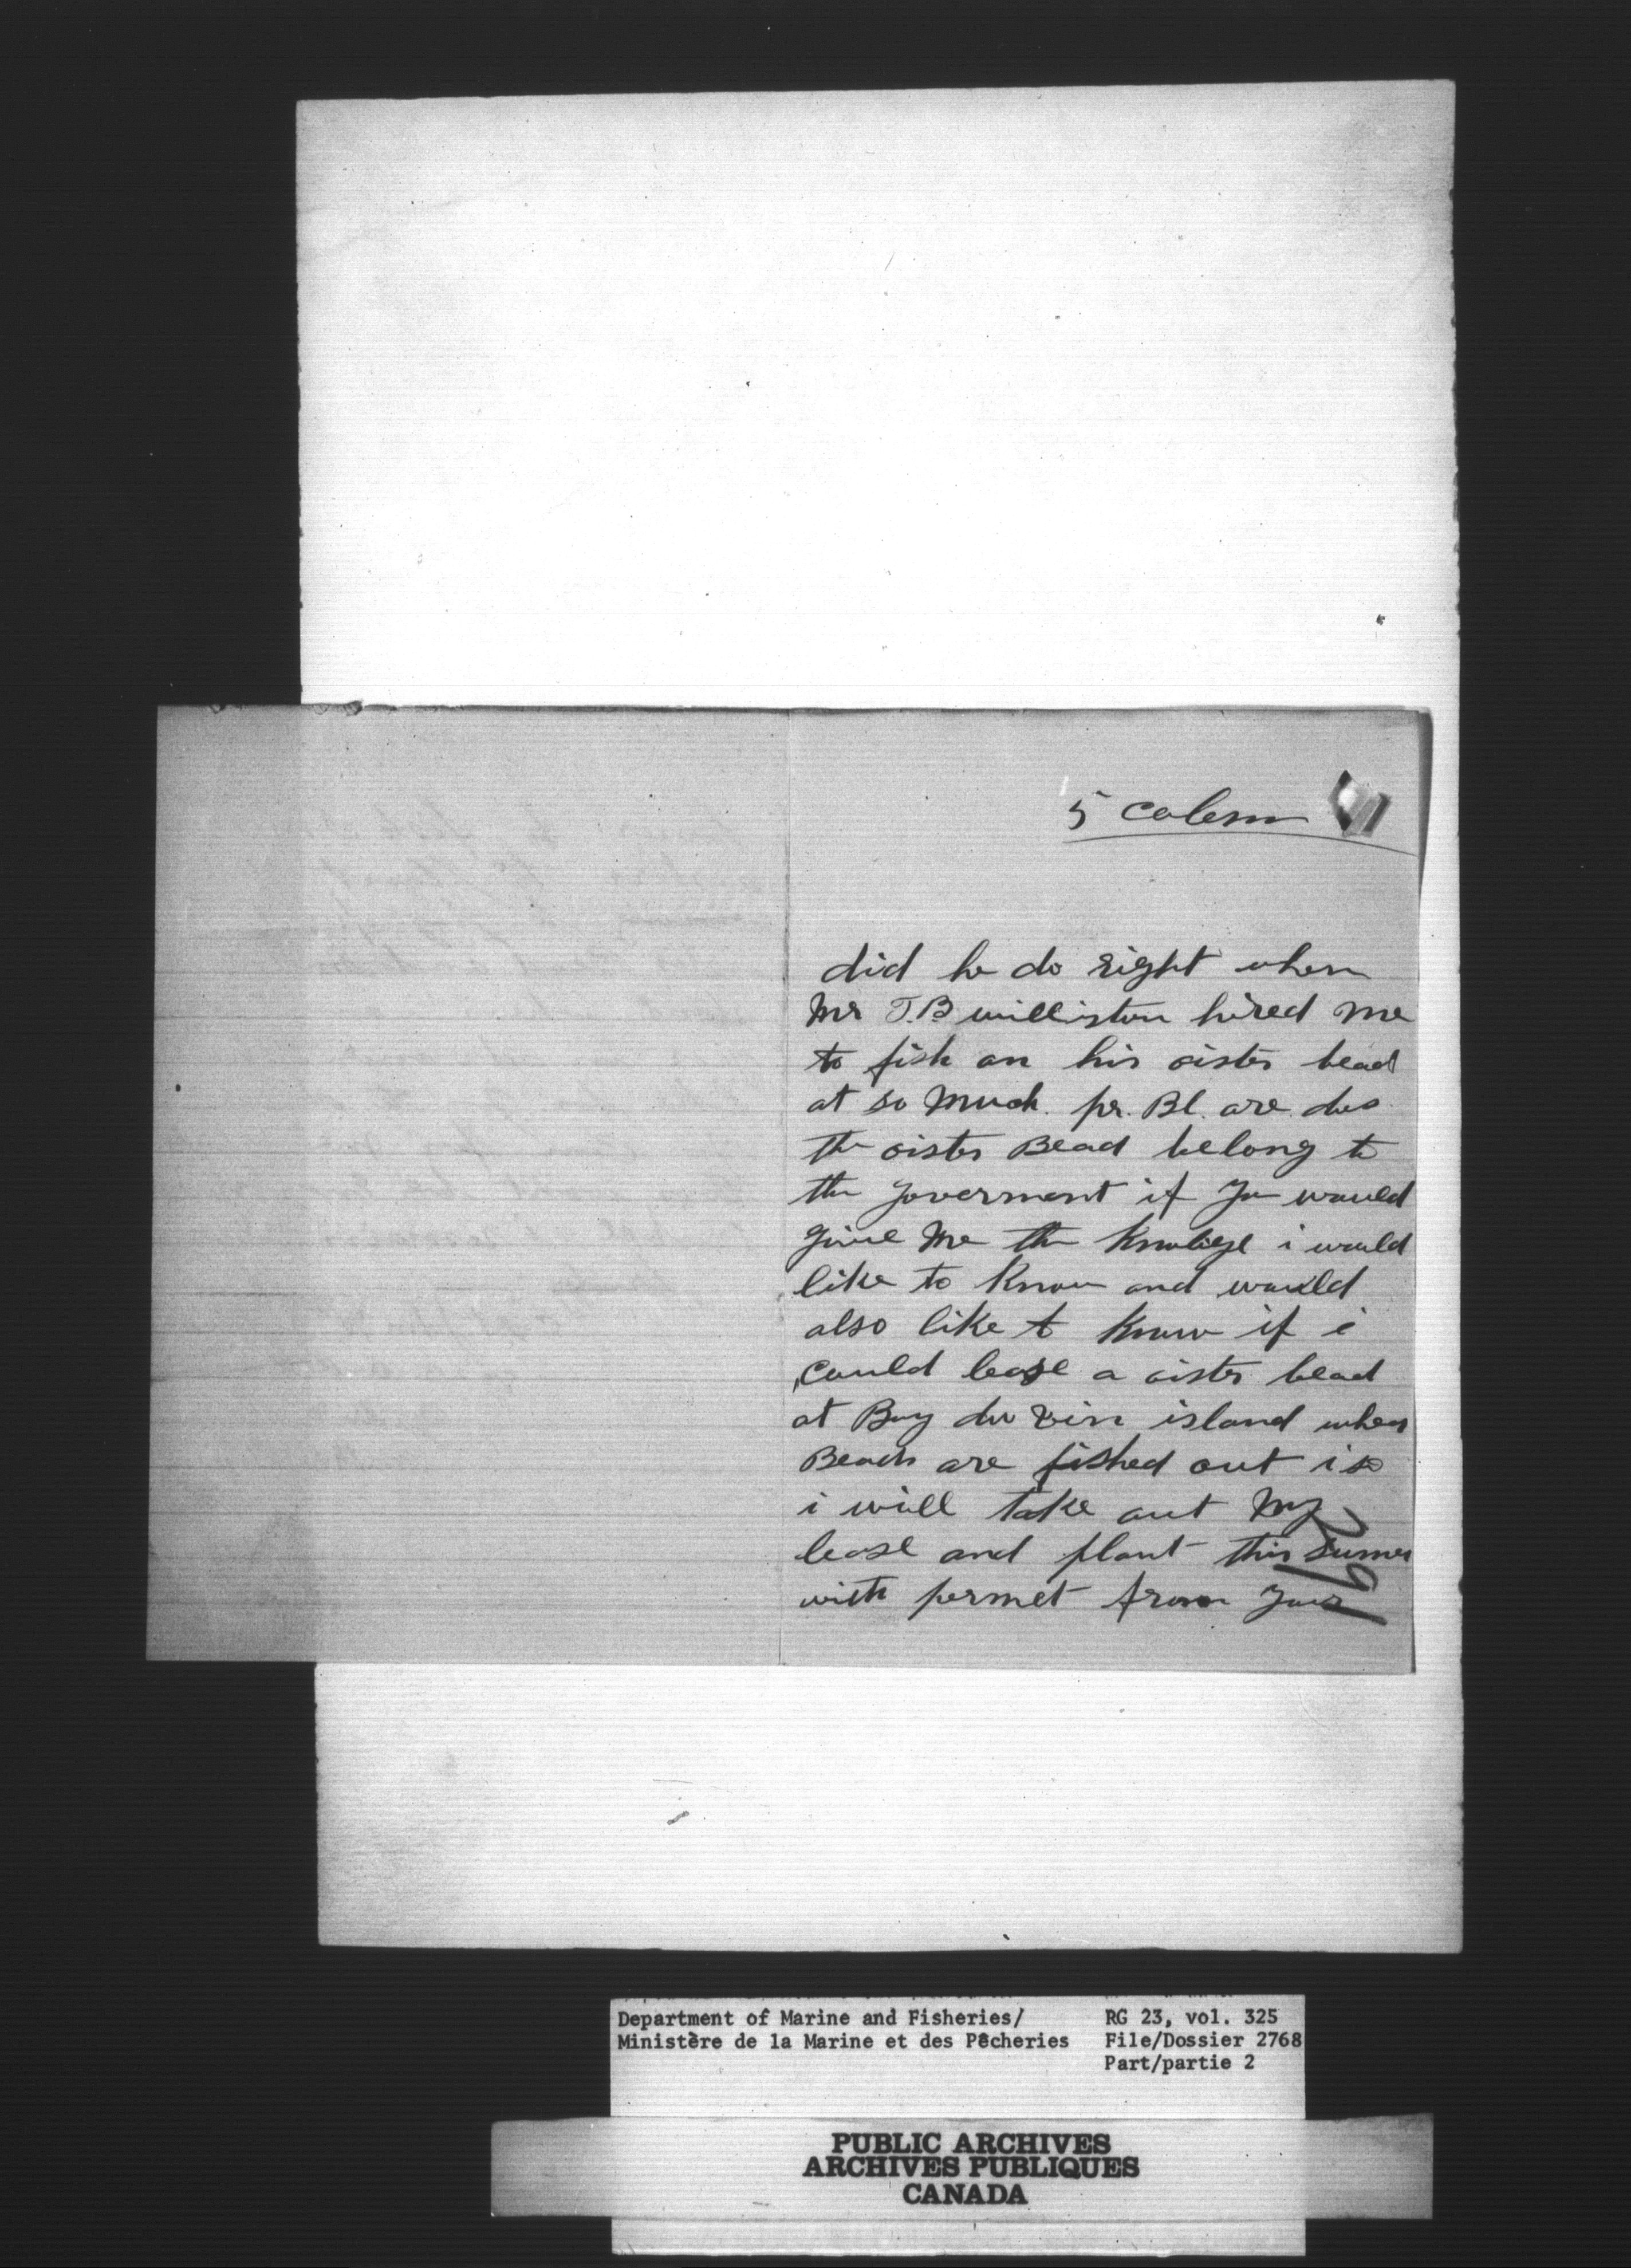 5 colem
did he do right when
Mr T.B williston hired me
to fish on his oister bead
at so Much pr. Bl. are dos
the oister Bead belong to
the goverment if you would
give Me the Knoliege i would
like to Know and would
also like to Know if i
could lease a oister bead
at Bay du vin island when
Beads are fished out is
i will take out My
lease and plant this sumer
with permet from you
Department of Marine and Fisheries/ RG 23, vol. 325
Ministère de la Marine et des Pêcheries File/Dossier 2768
Part/partie 2
PUBLIC ARCHIVES
ARCHIVES PUBLIQUES
CANADA